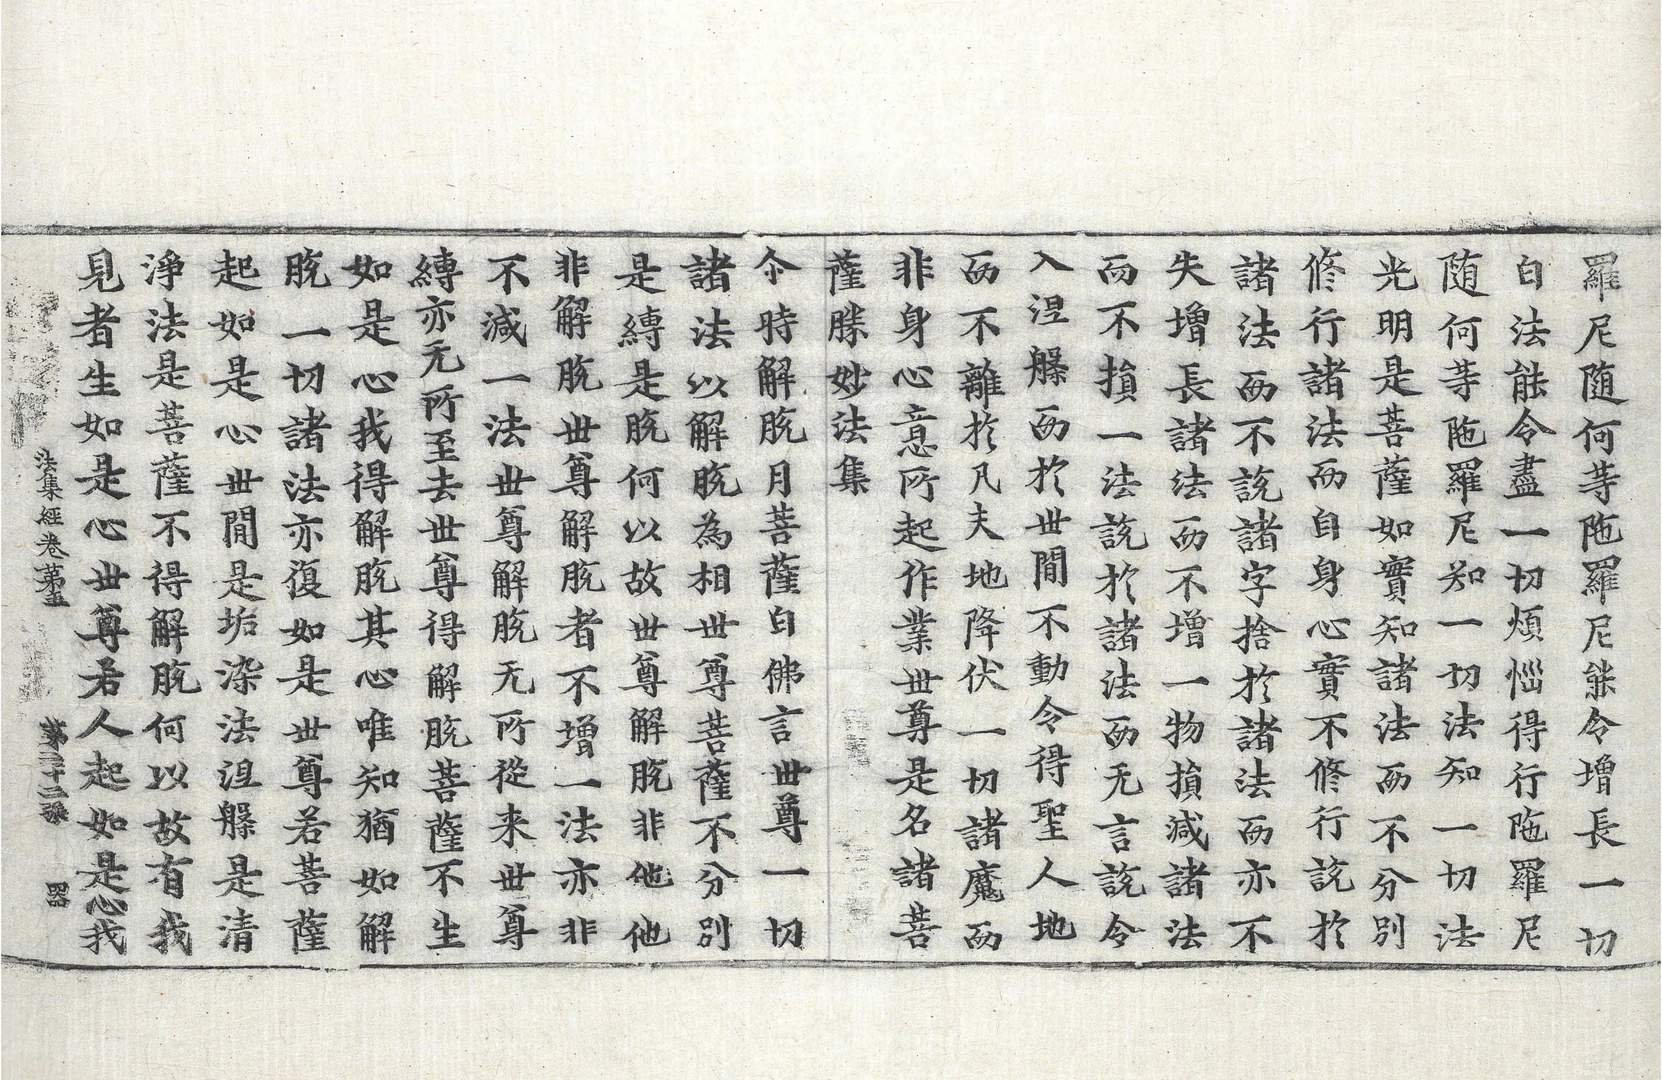 羅尼随何等陁羅尼能令增長一切
白法能令盡一切煩惱得行陁羅尼
随何等陁羅尼知一切法知一切法
光明是菩薩如實知諸法而不分別
修行諸法而自身心實不修行說於
諸法而不說諸字捨於諸法而亦不
失增長諸法而不增一物損減諸法
而不損一法說於諸法而无言說令
入涅槃而於世間不動令得聖人地
而不離於凡夫地降伏一切諸魔而
非身心意所起作業世尊是名諸菩
薩勝妙法集
尒時解脫月菩薩白佛言世尊一切
諸法以解脫為相世尊菩薩不分別
是縛是脫何以故世尊解脫非他他
非解脫世尊解脫者不增一法亦非
不減一法世尊解脫无所從来世尊
縛亦无所至去世尊得解脫菩薩不生
如是心我得解脫其心唯知猶如解
脫一切諸法亦復如是世尊若菩薩
起如是心世間是垢染法涅槃是清
淨法是菩薩不得解脫何以故有我
見者生如是心世尊若人起如是心我
法集經卷第五 第二十二張 器